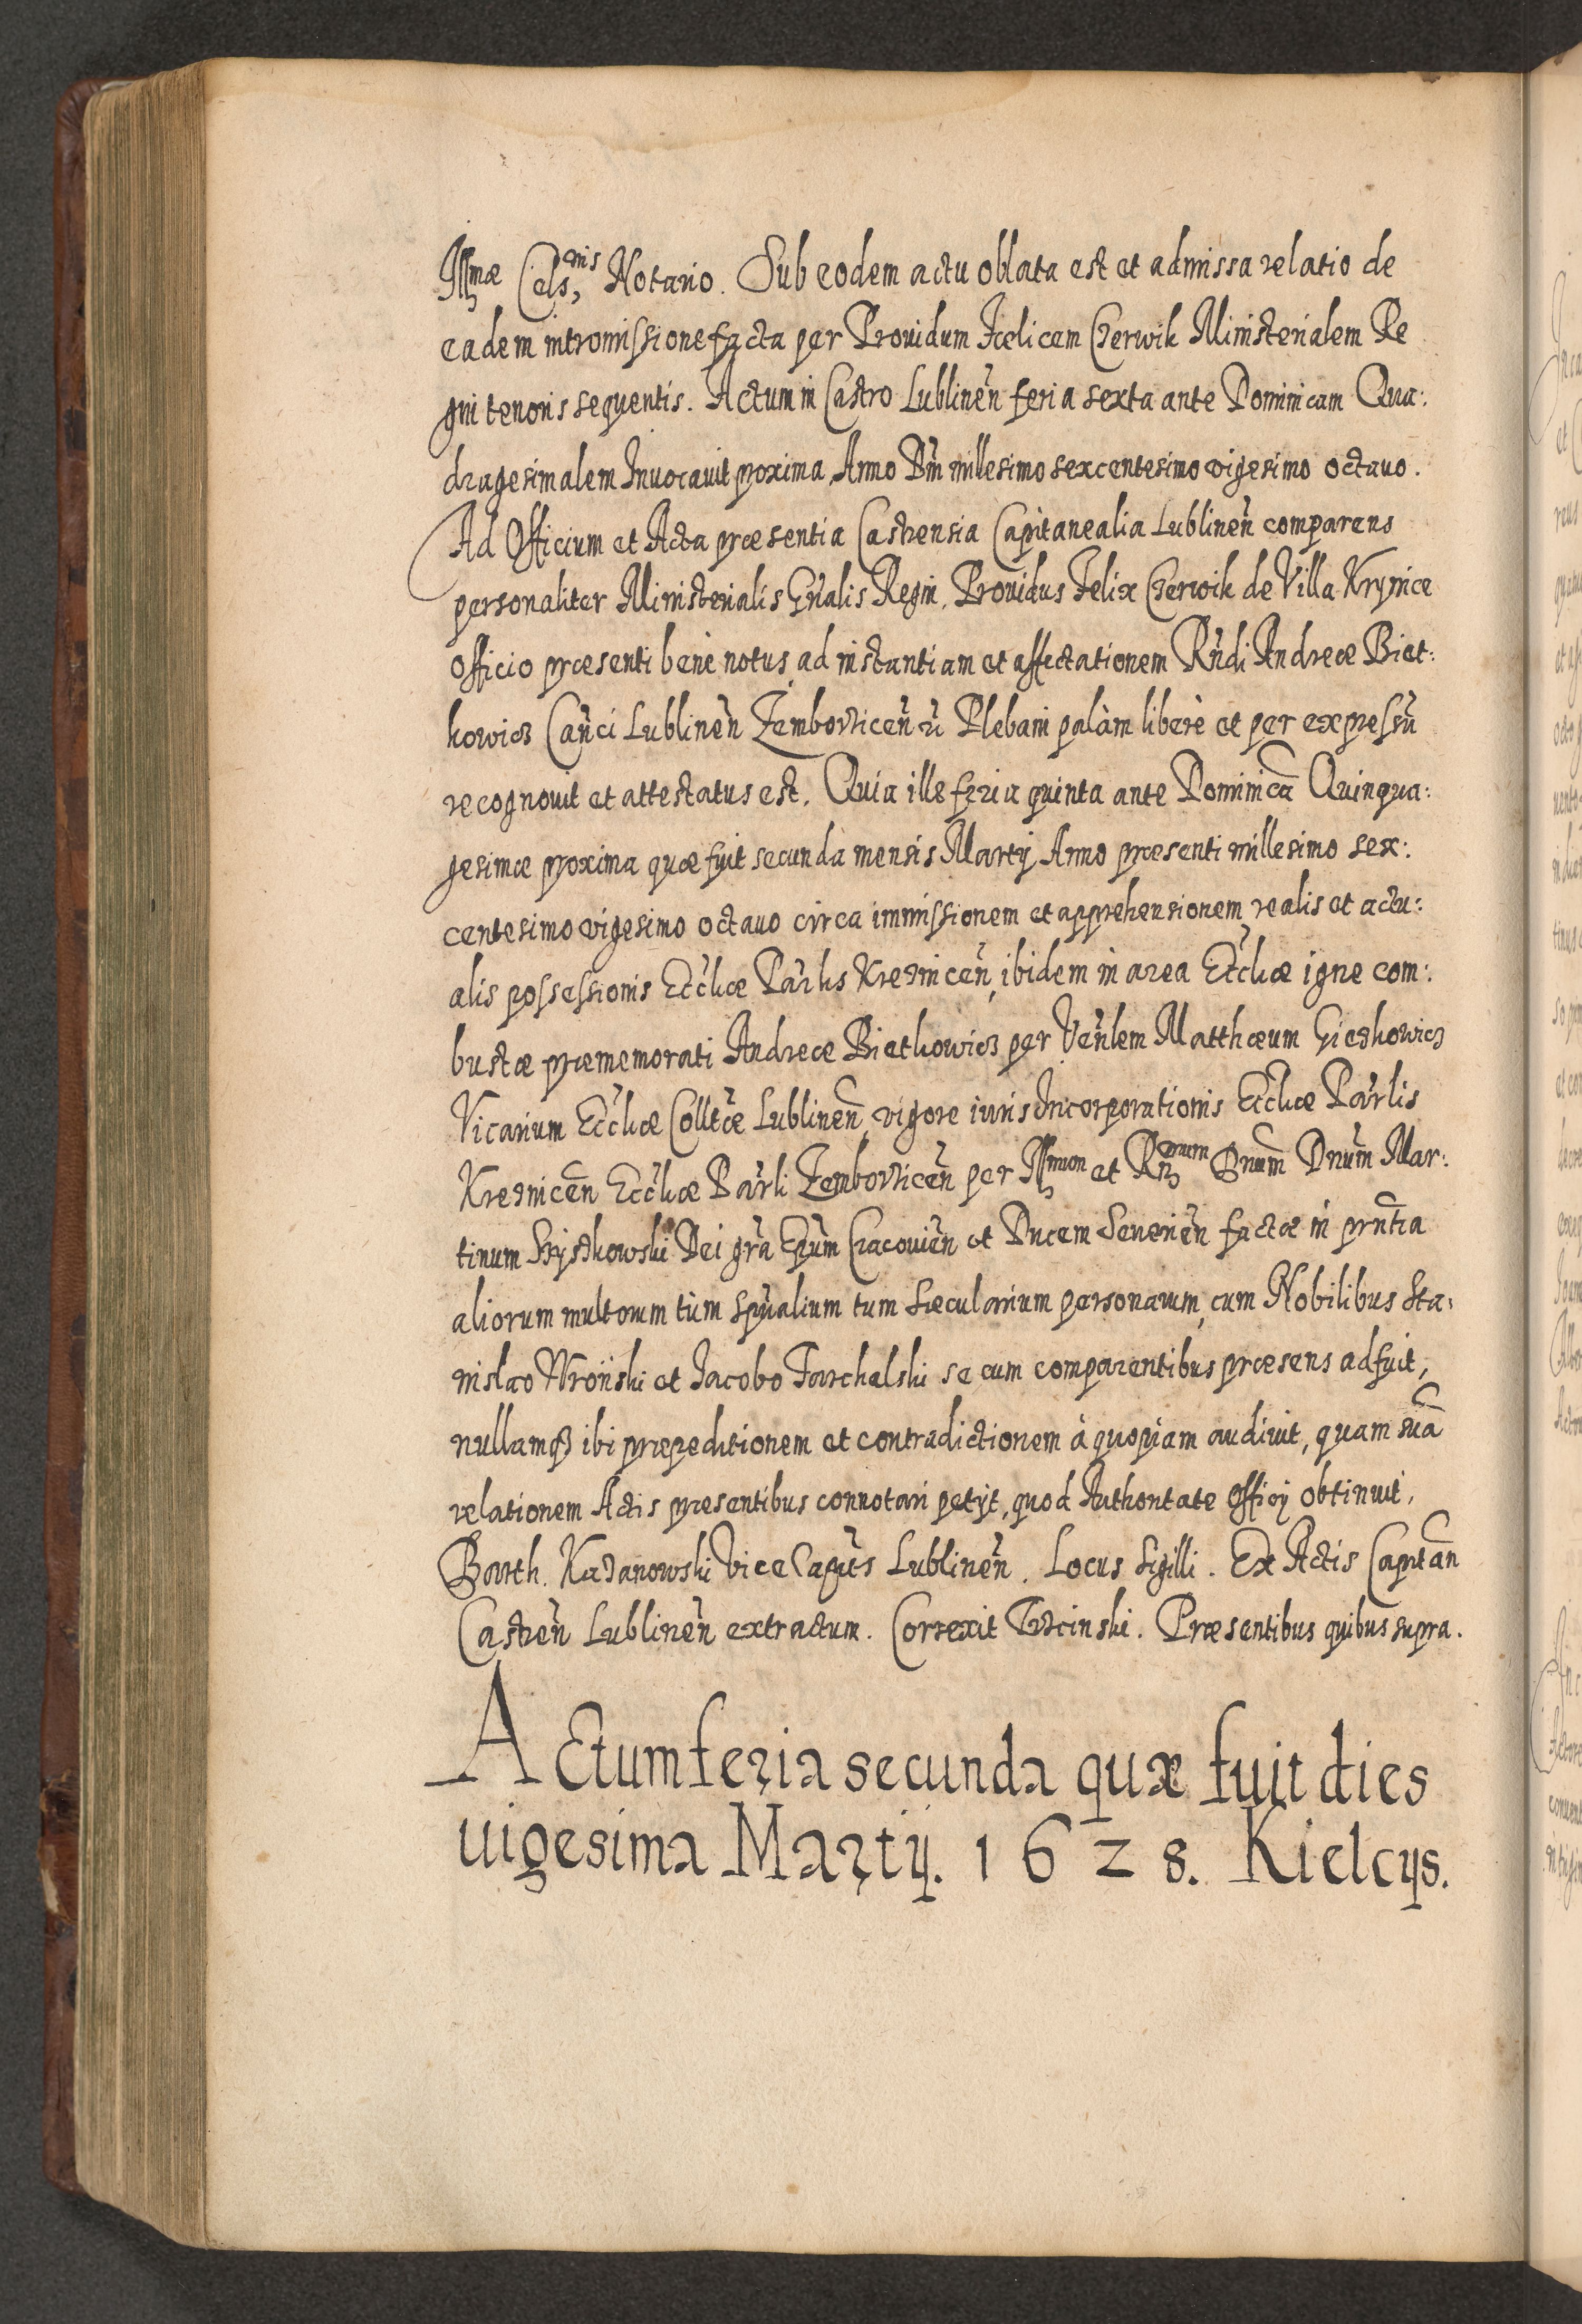 Illmæ Celsnis, Notario. Sub eodem actu oblata est et admissa relatio de
eadem intromissione facta per Prouidum Felicem Czerwik Ministerialem Re
gni tenoris sequentis. Actum in Castro Lublinen̄ feria sexta ante Dominicam Qua:
dragesimalem Inuocauit proxima, Anno Dn̄i millesimo sexcentesimo vigesimo octauo.
Ad Officium et Acta præsentia Castrensia Capitanealia Lublinen̄ comparens
personaliter Ministerialis Gn̄alis Regni, Prouidus Felix Czerwik de Villa Krynice
officio præsenti benè notus, ad instantiam et affectationem Rn̄di Andreæ Biet:
kowicz Can̄ci Lublinen̄ Zemborzicen̄ Plebani palàm liberè et per expressū
recognouit et attestatus est. Quia ille feria quinta ante Dominicā Quinqua:
gesimæ proxima quæ fuit secunda mensis Martÿ Anno præsenti millesimo sex:
centesimo vigesimo octauo circa immissionem et apprehensionem realis et actu:
alis possessionis Ecc̄læ Par̄lis Kreznicen̄, ibidem in area Ecc̄læ igne com:
bustæ prememorati Andreæ Bietkowicz per Ven̄lem Matthæum Gieszkowicz
Vicarium Ecc̄læ Collt̄æ Lublinen̄, vigore iuris Incorporationis Ecc̄læ Par̄lis
Kreznicen̄ Ecc̄læ Par̄li Zemborzicen̄ per Illmum et Rndmum Dnūm Dnūm Mar:
tinum Szyszkowski Dei gr̄a Ep̄um Cracouien̄ et Ducem Seuerien̄ factæ in prn̄tia
aliorum multorum tùm spūalium tum sæcularium personarum, cum Nobilibus Sta:
nislao Wroński et Jacobo Farchalski se cum comparentibus præsens adfuit,
nullamqꝫ ibi præpeditionem et contradictionem à quopiam audiuit, quam suā
relationem Actis præsentibus connotari petÿt, quod Authoritate Officÿ obtinuit.
Barth. Kazanowski Vice Capits Lublinen̄. Locus Sigilli. Ex Actis Capitan̄
Castren̄ Lublinen̄ extractum. Correxit Trzcinski. Præsentibus quibus supra.
ACtum feria secunda quæ fuit dies
uigesima Martÿ. 1628. Kielcÿs.